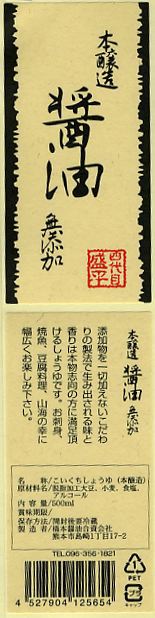 本醸造
醤油
無添加
四代目
盛平
本醸造 醤油 無添加
添加物を一切加えないこだわ
りの製法で生み出される味と
香りは本物志向の方に満足頂
けるしょうゆです。お刺身、
焼魚、豆腐料理、山海の幸に
幅広くお楽しみ下さい。
名称/こいくちしょうゆ(本醸造)
原材料名/脱脂加工大豆、小麦、食塩、
アルコール
内容量/500ml
賞味期限/
保存方法/開封後要冷蔵
製造者/橋本醤油合資会社
熊本市島崎1丁目17-2
TEL.096-356-1821
4 527904 125654
1
PET
キャップ